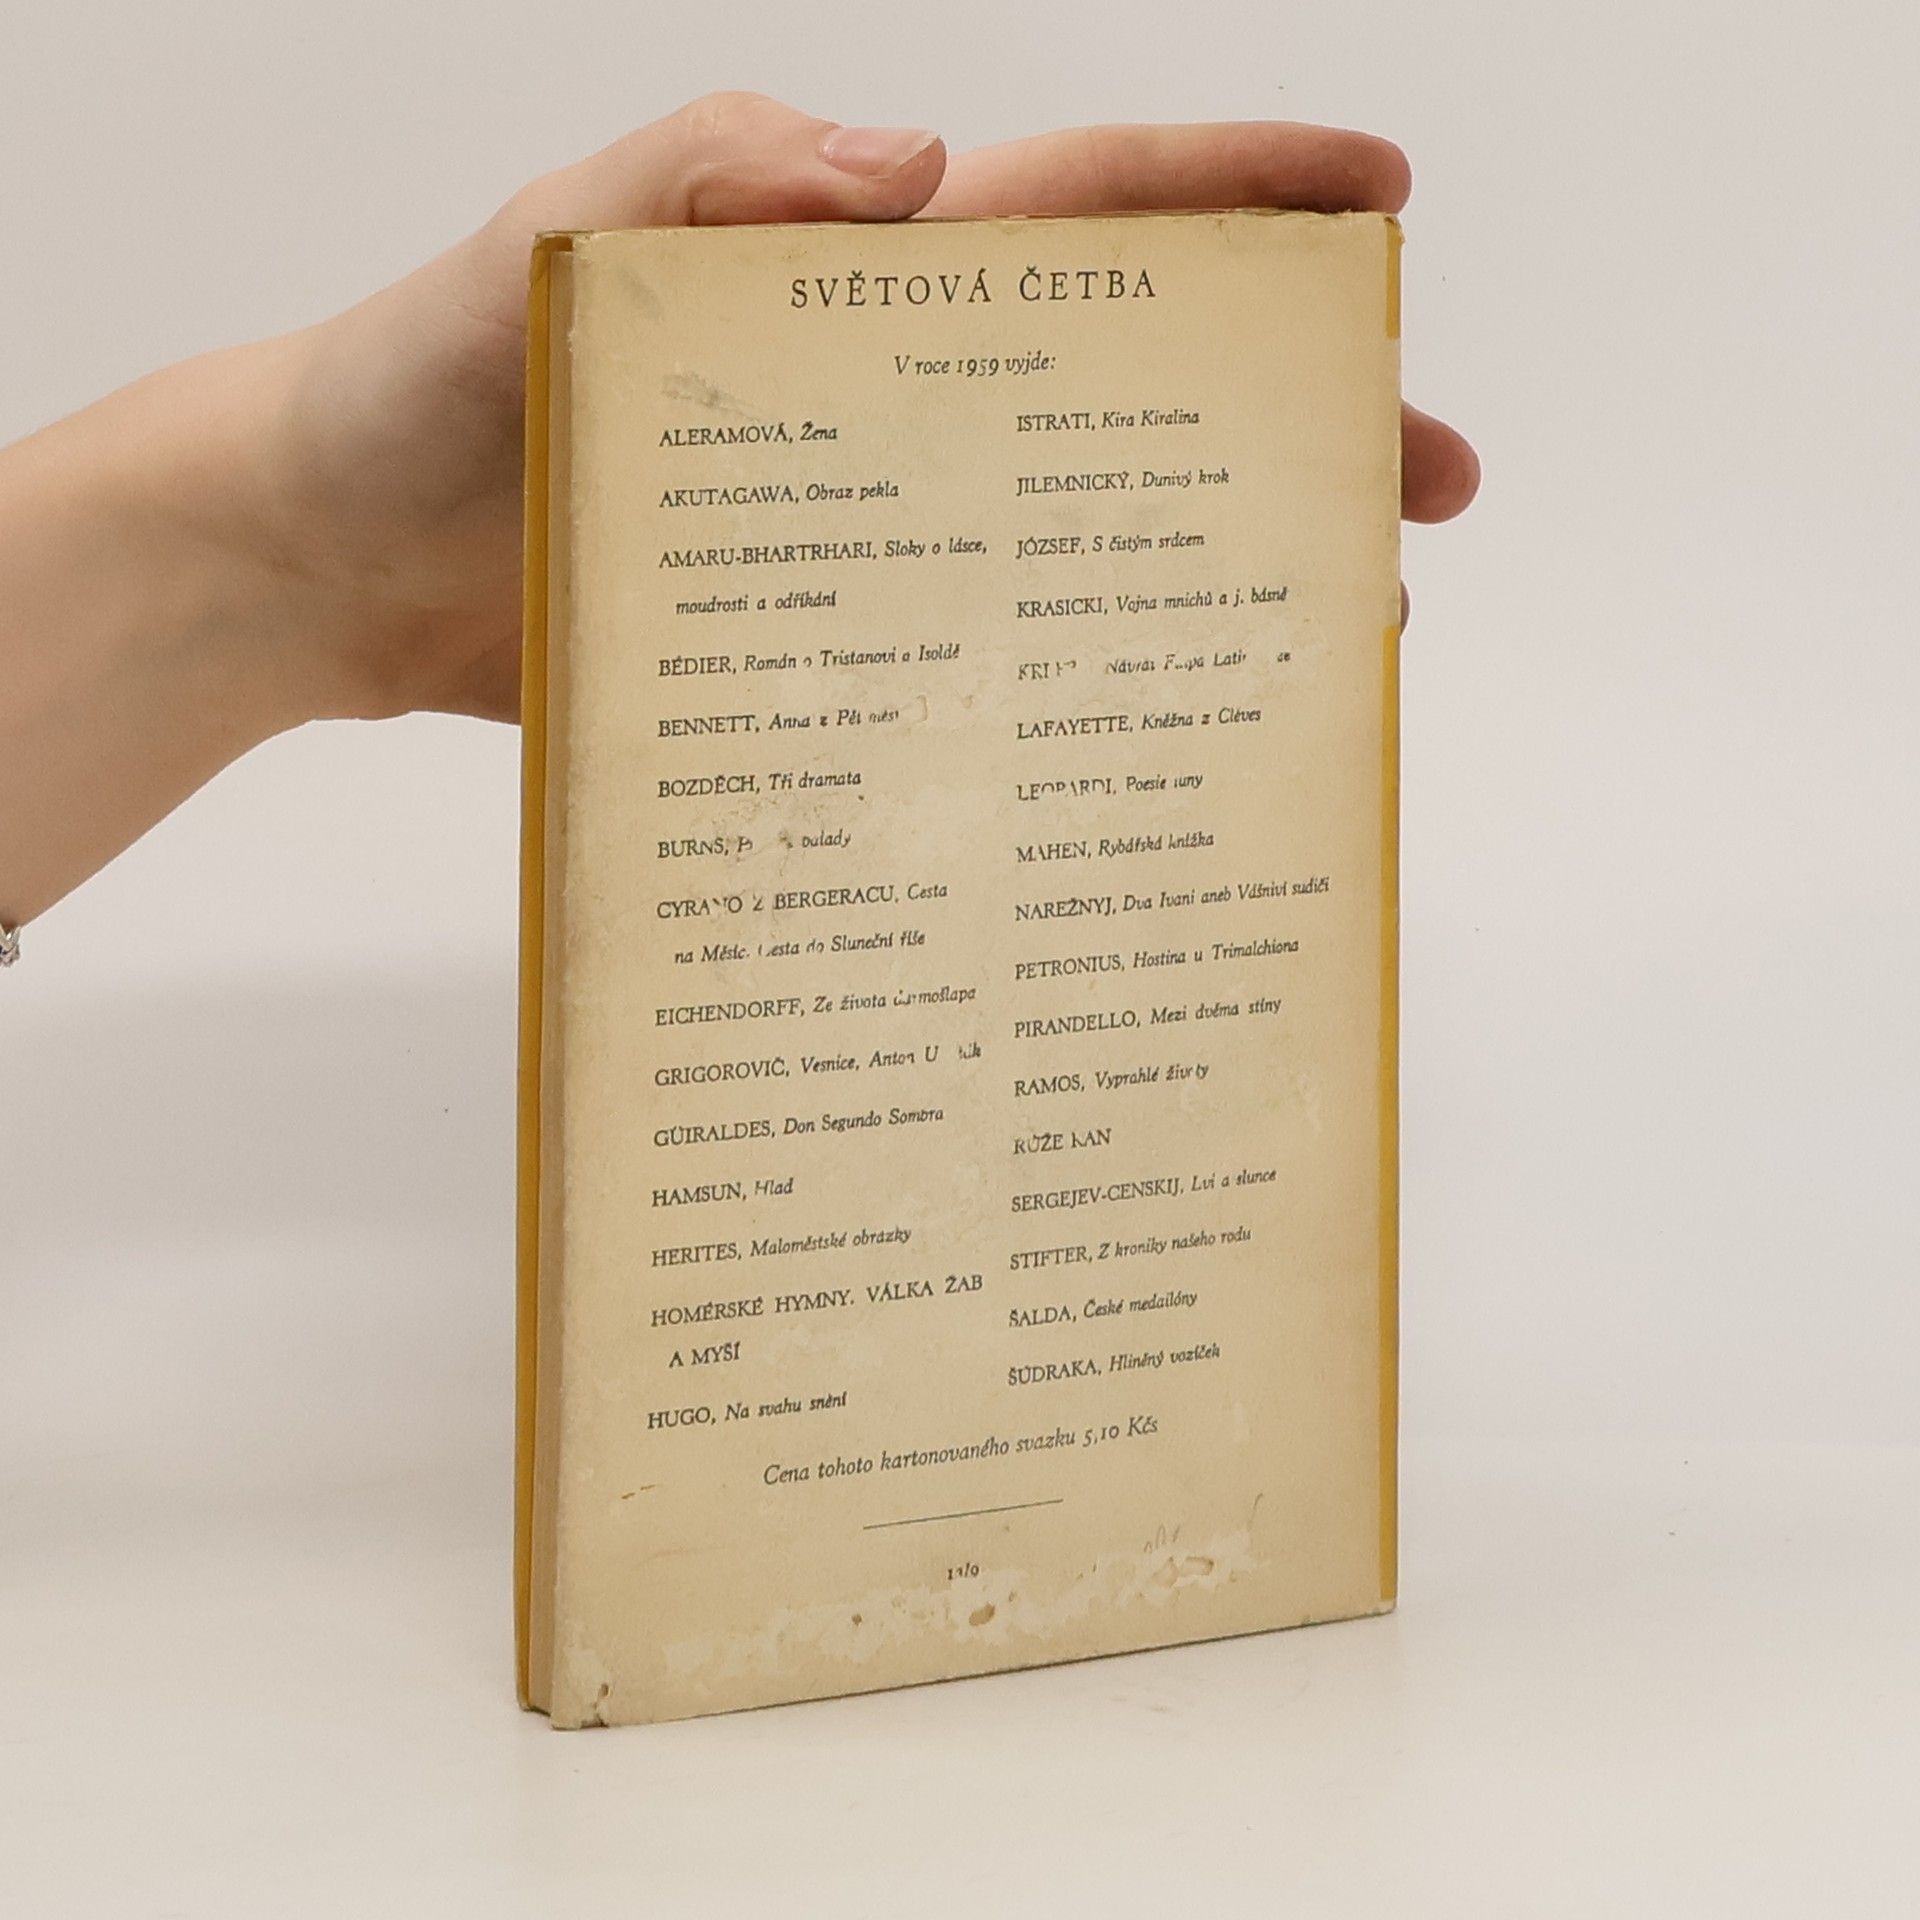 SVĚTOVÁ ČETBA
V roce 1959 vyjde:
ALERAMOVÁ, Žena
AKUTAGAWA, Obraz pekla
AMARU-BHARTRHARI, Sloky o lásce,
moudrosti a odříkání
BÉDIER, Román o Tristanovi a Isoldě
BENNETT, Anna z Pěti měst
BOZDĚCH, Tři dramata
BURNS, balady
CYRANO Z BERGERACU, Cesta
na Měsíc. Cesta do Sluneční říše
EICHENDORFF, Ze života darmošlapa
GRIGOROVIČ, Vesnice, Anton
GÜIRALDES, Don Segundo Sombra
HAMSUN, Hlad
HERITES, Maloměstské obrázky
HOMÉRSKÉ HYMNY. VÁLKA ŽAB
A MYŠÍ
HUGO, Na svahu snění
ISTRATI, Kira Kiralina
JILEMNICKÝ, Dunivý krok
JÓZSEF, S čistým srdcem
KRASICKI, Vojna mnichů a j. básně
Návrat Filipa
LAFAYETTE, Kněžna z Clèves
LEOPARDI, Poesie luny
MAHEN, Rybářská knížka
NAREŽNYJ, Dva Ivani aneb Vášniví sudiči
PETRONIUS, Hostina u Trimalchiona
PIRANDELLO, Mezi dvěma stíny
RAMOS, Vyprahlé životy
RŮŽE RAN
SERGEJEV-CENSKIJ, Lvi a slunce
STIFTER, Z kroniky našeho rodu
ŠALDA, České medailóny
ŠÚDRAKA, Hliněný vozíček
Cena tohoto kartonovaného svazku 5,10 Kčs